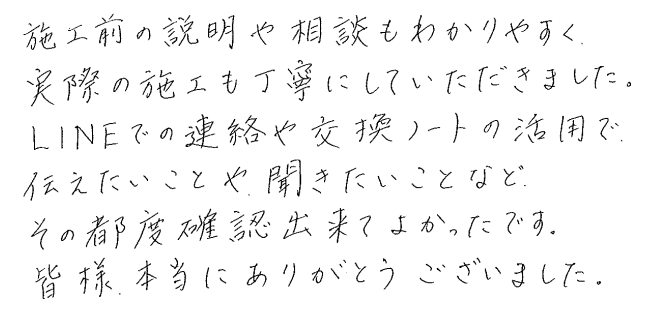 施工前の説明や相談もわかりやすく、
実際の施工も丁寧にしていただきました。
LINEでの連絡や交換ノートの活用で、
伝えたいことや、聞きたいことなど、
その都度確認出来てよかったです。
皆様、本当にありがとうございました。